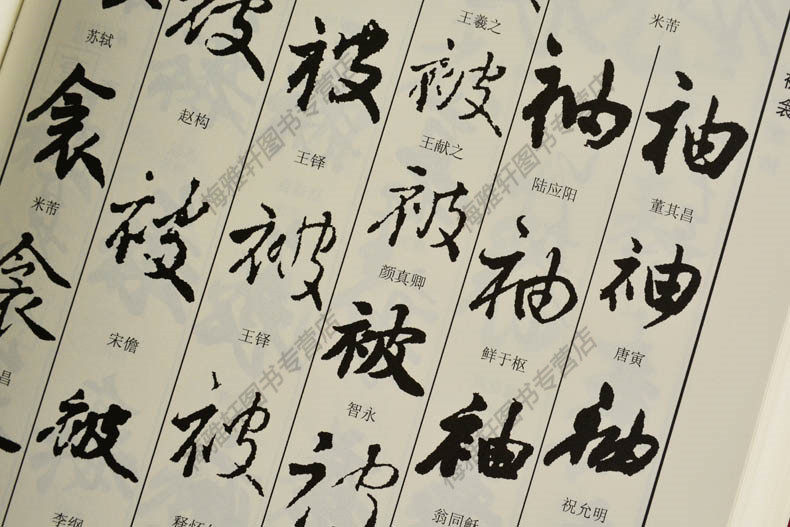 米芾
袖
董其昌
袖
唐寅
袖
祝允明
袖
陆应阳
袖
鲜于枢
袖
翁同
王羲之
被
王献之
被
颜真卿
被
智永
被
被
王铎
被
王铎
被
释怀
被
赵构
被
宋儋
被
李纲
苏轼
衾
米芾
衾
昌
梅雅轩图书专营店
梅雅轩图书专营店
梅雅轩图书专营店
梅雅轩图书专营店